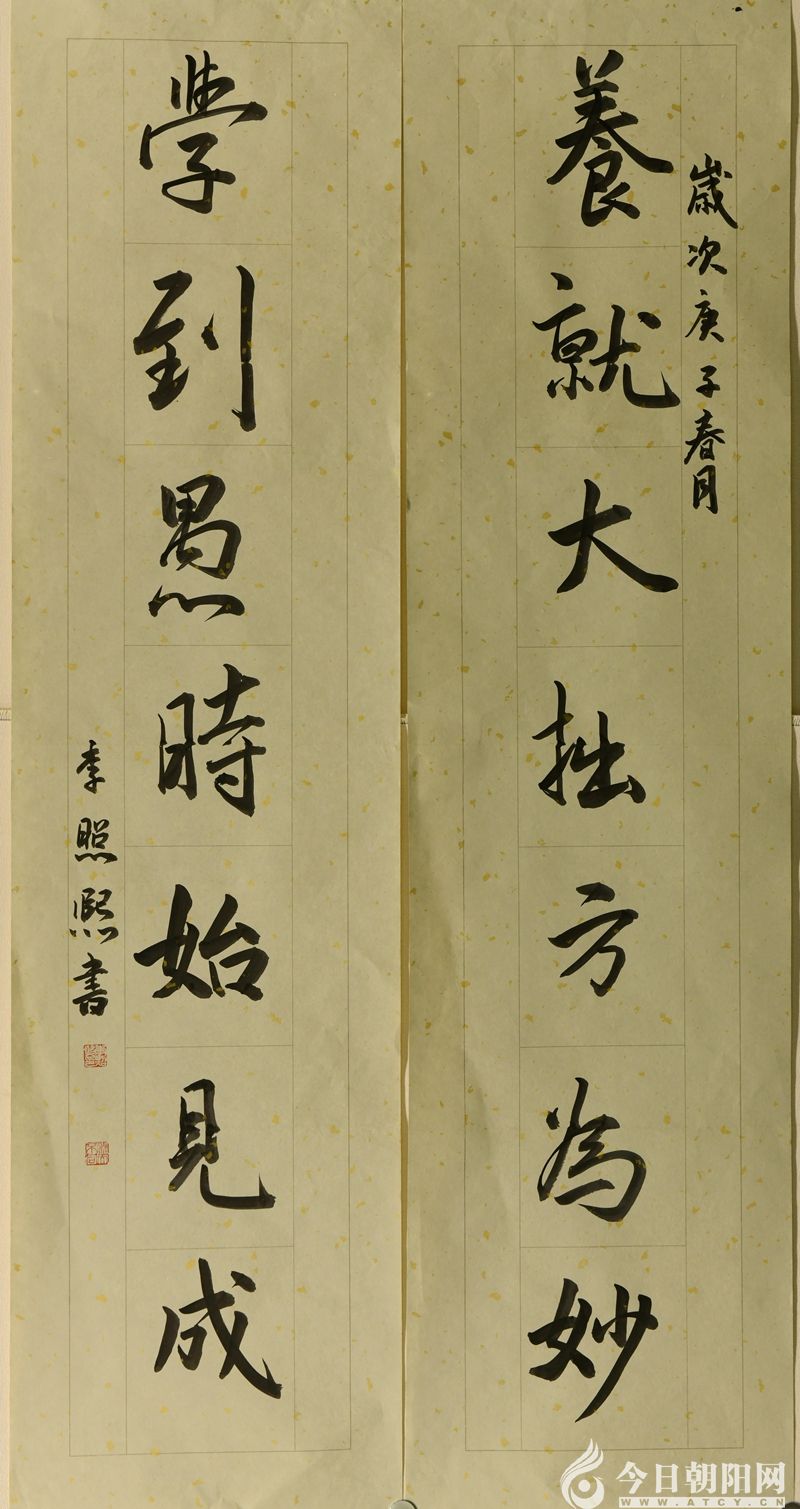 歲次庚子春月
養就大拙方為妙
學到愚時始見成
李照熙書
今日朝阳网
WWW.ATCY.CN